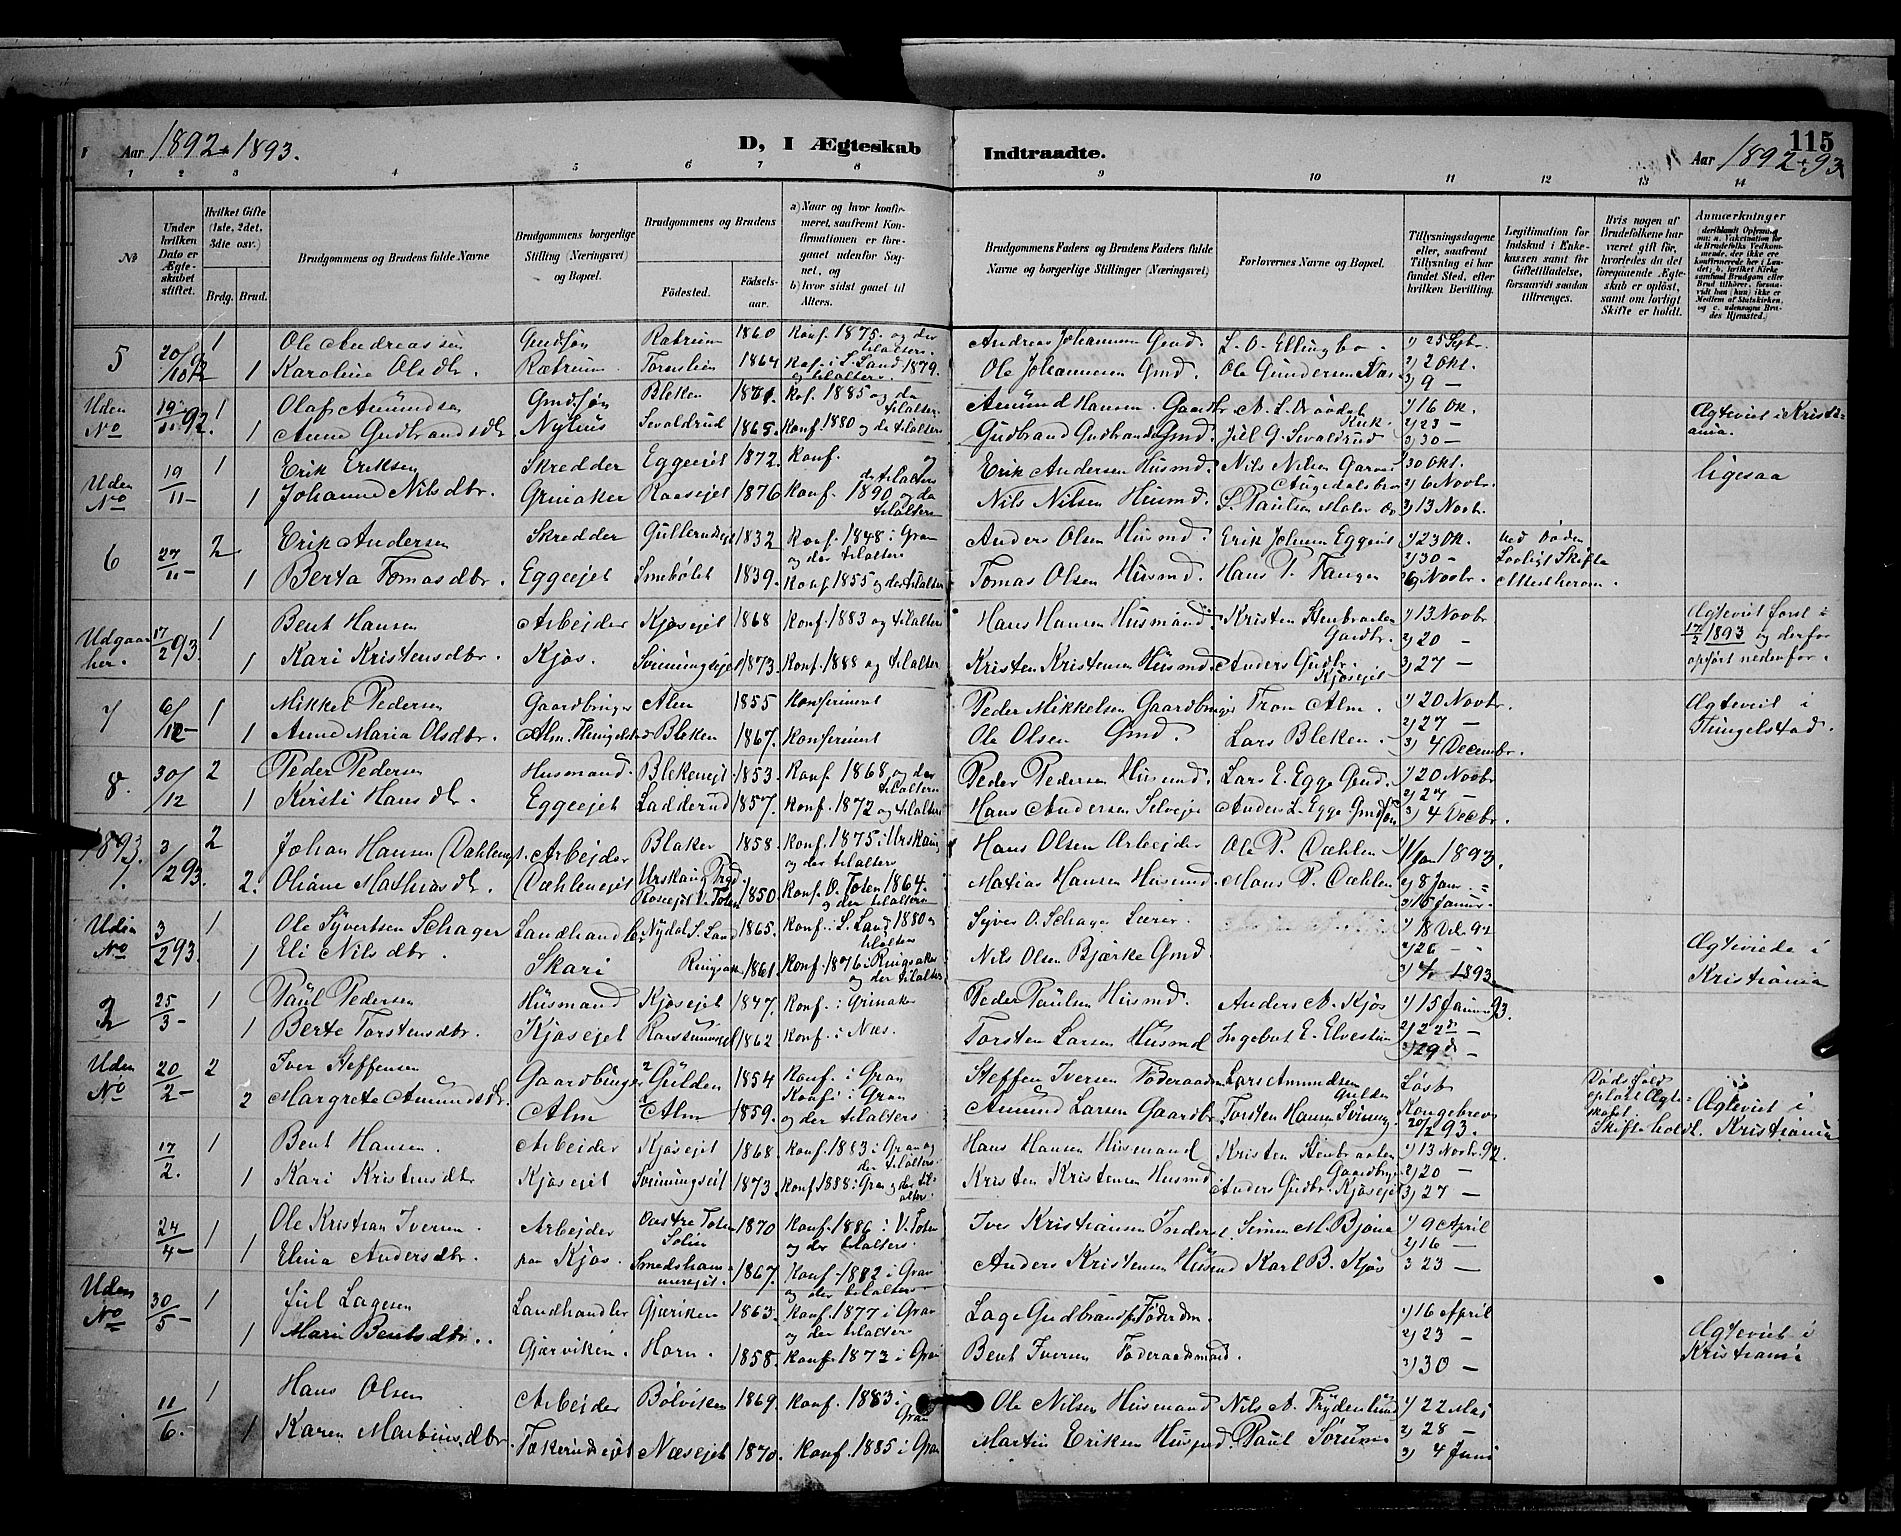 Aar 1892 + 1893.
D, I Ægteskab
Indtraadte.
115
Aar 1892 + 93
1 2 3 4 5 6 7 8 9 10 11 12 13 14
No
Under hvilken Dato er Ægteskabet stiftet.
Hvilket Gifte (1ste, 2det, 3die osv.)
Brdg. Brud.
Brudgommens og Brudens fulde Navne
Brudgommens borgerlige Stilling (Næringsvei) og Bopæl.
Brudgommens og Brudens
Fødested.
Fødselsaar.
a) Naar og hvor konfirmeret, saafremt Konfirmationen er foregaaet udenfor Sognet, og
b) hvor sidst gaaet til Alters.
Brudgommens Faders og Brudens Faders fulde Navne og borgerlige Stillinger (Næringsvei)
Forlovernes Navne og Bopæl.
Tillysningsdagene eller, saafremt Tillysning ei har fundet Sted, efter hvilken Bevilling.
Legitimation for Indskud i Enkekassen samt for Giftetilladelse, forsaavidt saadan tiltrænges.
Hvis nogen af Brudefolkene har været gift før, hvorledes da det foregaaende Ægteskab er opløst, samt om lovligt Skifte er holdt.
Anmærkninger
5 20/10 92 1 Ole Andreassen Gmdsøn Ratrum 1860 Konf. 1875 og der tilalters. Andreas Johannesen Gmd. L. O. Ellingbo 1) 25 Septbr.
1 Karoline Olsdtr. Rætrum. Tornlien 1864 Kof. i S. Land 1879. og tilalters. Ole Johannesen Gmd. Ole Gundersen Næs 2) 2 Okt. 3) 9 —
Uden No 19/11 92. 1 Olaf Amundsen Gmdsøn Bleken Kof. 1885 og da tilalters. Amund Hansen Gaardbr 1) 16 Ok.
1 Anne Gudbrandsdtr. Nyhus Sevaldrud 1865 Konf 1880 og da tilalters Gudbrand Gudbrandsen Gmd. Jul G. Sevaldrud 2) 23 — 3) 30 — Ægteviet i Kristiania.
Uden No 19/11 — 1 Erik Eriksen Skredder Eggeejet 1872. Konf. og da tilalters Erik Andersen Husmd. Nils Nilsen 1) 30 Okt. ligesaa
1 Johanne Nilsdtr. Grinaker Raasejet 1876 Konf. 1890 og da tilalters Nils Nilsen Husmd. L. Paulsen Maler 2) 6 Novbr. 3) 13 Novbr.
6 27/11 — 2 Erik Andersen Skredder Gullerudsejet 1832 Konf. 1848 i Gran og der tilalters Anders Olsen Husmd. Erik Johnsen Eggeeiet 1) 23 Ok. ved Døden
1 Berta Tomasdtr. Eggeejet Smebölet 1839. Konf 1855 og da tilalters Tomas Olsen Husmd. Hans P. Tangen 2) 30 — 3) 6 Novbr. Lovligt Skifte
Udgaar her. 17/2 93. 1 Bent Hansen Arbejder Kjøsejet 1868 Konf. 1883 og tilalters Hans Hansen Husmand. Kristen Stenbraaten Gaardbr. 1) 13 Novbr 2) 20 — Ægteviet først i 17/2 1893 og derfor opført nedenfor.
1 Kari Kristensdtr. Kjøs. Svinningsejet 1873. Konf. 1888 og tilalters Kristen Kristensen Husmd. Anders Gudbr. Kjøsejet 3) 27 —
7 6/12 — 1 Mikkel Pedersen Gaardbruger Alm 1855 Konfirmeret Peder Mikkelsen Gaardbruger Tron Alm. 1) 20 Novbr. Ægteviet i
1 Anne Maria Olsdtr. Alm. Bleken 1867. Konfirmeret Ole Olsen Gmd. Lars Bleken. 2) 27 — 3) 4 Decembr. Tingelstad.
8. 30/12 2 Peder Pedersen Husmand. Blekenejet 1853. Konf 1868 og der tilalters Peder Pedersen Husmd. Lars E. Egge Gmd. 1) 20 Novbr
1 Kirsti Hansdtr. Eggeejet Ladderud 1857. Konf. 1872 og tilalters Hans Andersen Selveje Anders L. Egge Gmdsøn 2) 27 — 3) 4 Decbr.
1893. 1. 3/2 93. 2 Johan Hansen Dæhleneje Arbejder Blaker 1858. Konf. 1875 i Urskoug og der tilalters Hans Olsen Arbejder Ole P. Dæhlen 1) 1/Jan 1893.
2. Oliane Mathiasdtr. Dæhlenejet Urskoug Prgd. V. Toten 1850. Konf. V. Toten 1864. og der tilalters Matias Hansen Husmd. Hans P. Dæhlen 2) 8 Janr. 3) 15 Januar.
Uden No 3/2 93. 1 Ole Syvertsen Schager Landhandler Nydal S. Land 1865. Konf. i S. Land 1880 og tilalters Syver O. Schager Lærer. 1) 18 Dcb. 92 2) 26 — Ægteviede i
1 Eli Nilsdtr. Skari Ringsaker 1861. Konf. 1876 i Ringsaker og der tilalters Nils Olsen Bjørke Gmd. 1893. Kristiania
2 25/3 — 1 Paul Pedersen Husmand Kjøsejet 1847. Konf. i Grinaker Peder Paulsen Husmd. Anders A. Kjøs 1) 15 Januar 93.
1 Berte Torstensdtr. Kjøsejet 1862 Konf. i Næs. Torsten Larsen Husmd Ingebret E. Elvestuen 2) 22 d — 3) 29 d —
Uden No 20/2 — 2 Iver Steffensen Gaardbruger Gulden 1854 Konf. i Gran Steffen Iversen Føderaadm Lars Amundsen Gulden Løst Dødsfald opløst Ægteskabet. Ægteviet i
2 Margrete Amundsdtr. Alm Alm 1859. Konf. i Gran og der tilalters Amund Larsen Gaardbr. Torsten Hansen Svinning Kongebrev 20/2 93. Skifte holdt. Kristiania
17/2. 1 Bent Hansen. Arbeider Kjøsejet 1868. Konf. 1883 i Gran og der tilalters. Hans Hansen Husmand Kristen Stenbraaten Gaardbruger 1) 13 Novbr. 92.
1 Kari Kristensdtr. Kjøsejet Svinningseiet 1873. Konf 1888 i Gran og der tilalters. Kristen Kristensen Husmd Anders Gudbr. Kjøsejet 2) 20 — 3) 27 —
24/4 — 1 Ole Kristian Iversen. Arbejder Vestre Toten 1870 Konf. 1886 i V. Toten og der tilalters. Iver Kristiansen Inderst Simen M. Bjøne 1) 9 April 2) 16 —
1 Elina Andersdtr. paa Kjøs. Smedshammerejet. 1867. Konf. 1882 i Gran og der tilalters. Anders Kristensen Husmd Karl B. Kjøs 3 23 —
Uden No 30/5 — 1 Jul Lagesen Landhandler Gjæriken 1863. Konf. 1877 i Gran og der tilalters Lage Gudbrands. Føderdm. 1) 16 April 2) 23 — Ægteviet i
1 Marie Bentsdtr. Gjærviken. Horn. 1858. Konf. 1873 i Gran Bent Iversen Føderaadsmand. 3) 30 — Kristiania
11/6. 1 Hans Olsen Arbejder Bölviken 1869. Konf. 1883. i Gran Ole Nilsen Husmand Nils A. Frydenlund 1) 22 Maj 2) 28 —
1 Karen Martinusdtr. Tækerudsejet Næsejet 1870. Konf. 1885 i Gran Martin Eriksen Husmd. Paul Sørum 3) 4 Juni